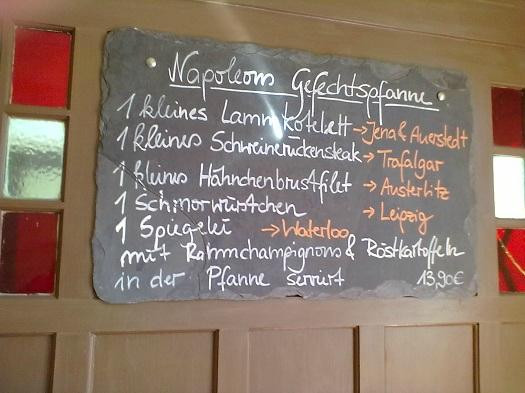 Napoleons Gefechtspfanne
1 kleines Lammkotelett → Jena & Auerstedt
1 kleines Schweinerückensteak → Trafalgar
1 kleines Hähnchenbrustfilet → Austerlitz
1 Schmorwürstchen → Leipzig
1 Spiegelei → Waterloo
mit Rahmchampignons & Röstkartoffeln
in der Pfanne serviert 13,90€